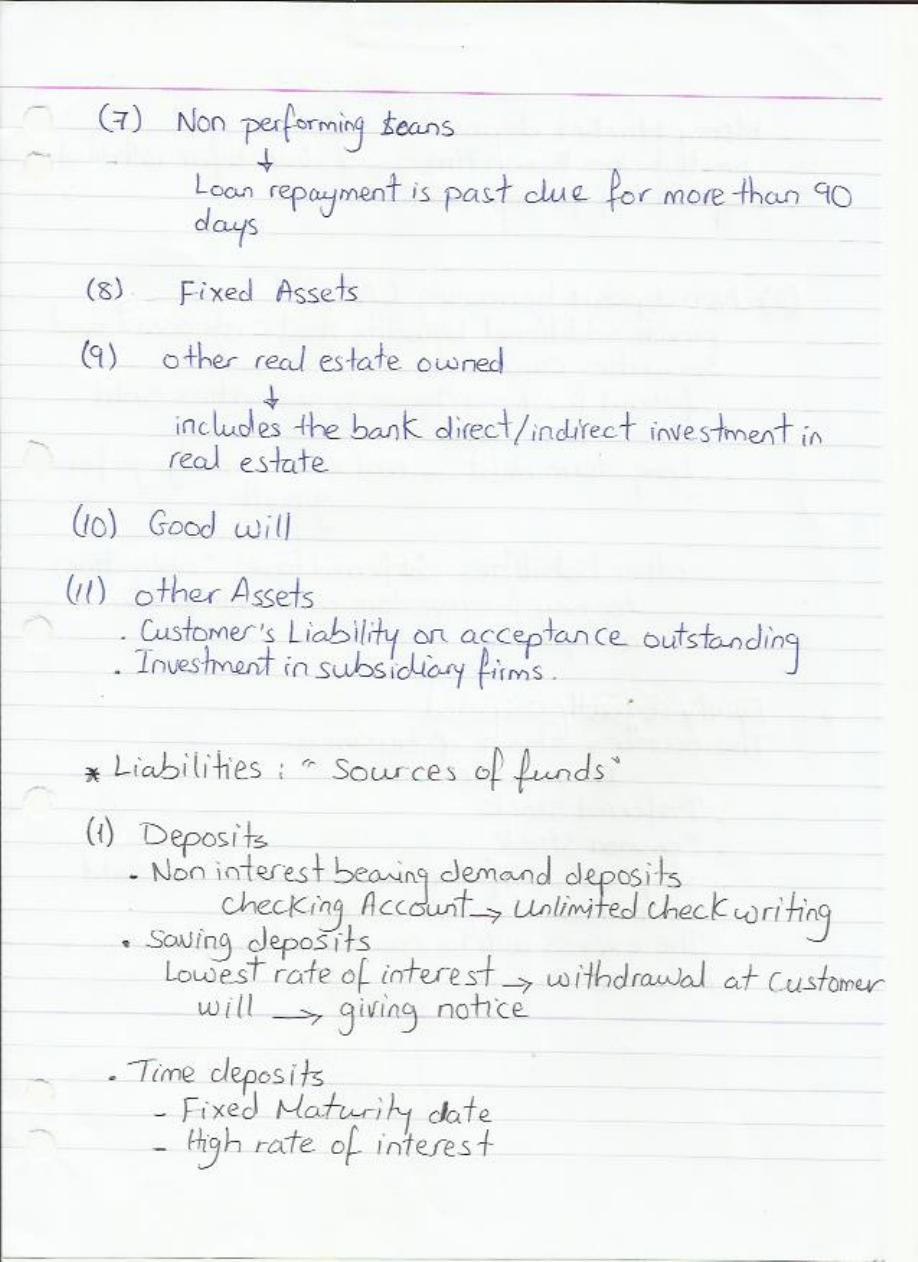 (7) Non performing loans
↓
Loan repayment is past due for more than 90
days
(8) Fixed Assets
(9) other real estate owned
↓
includes the bank direct/indirect investment in
real estate
(10) Good will
(11) other Assets
. Customer's Liability on acceptance outstanding
. Investment in subsidiary firms.
* Liabilities : " Sources of funds"
(1) Deposits
. Non interest bearing demand deposits
checking Account → Unlimited check writing
. Saving deposits
Lowest rate of interest → withdrawal at customer
will → giving notice
. Time deposits
- Fixed Maturity date
- High rate of interest